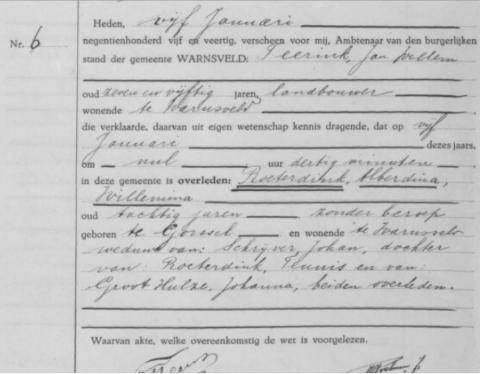 Heden, vijf Januari
Nr. 6
negentienhonderd vijf en veertig, verscheen voor mij, Ambtenaar van den burgerlijken
stand der gemeente WARNSVELD: Teerink, Jan Willem
oud zeven en vijftig jaren, landbouwer
wonende te Warnsveld
die verklaarde, daarvan uit eigen wetenschap kennis dragende, dat op vijf
Januari dezes jaars,
om nul uur dertig minuten
in deze gemeente is overleden: Roeterdink, Alberdina,
Willemina
oud tachtig jaren zonder beroep
geboren te Gorssel en wonende te Warnsveld
weduwe van: Schrijver, Johan, dochter
van: Roeterdink, Teunis en van:
Groot Hulze, Johanna, beiden overleden.
Waarvan akte, welke overeenkomstig de wet is voorgelezen.